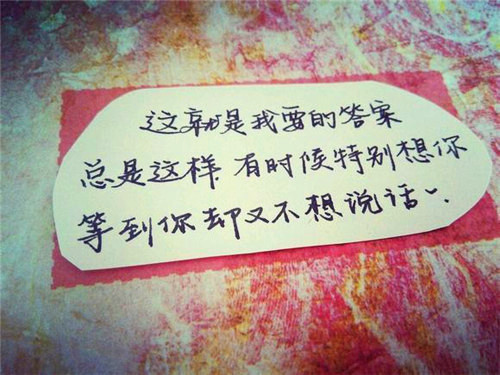 这就是我要的答案
总是这样 有时候特别想你
等到你却又不想说话~.